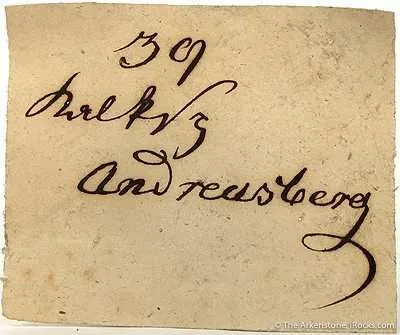 39
Kalksp
Andreasberg
© The Arkenstone, iRocks.com